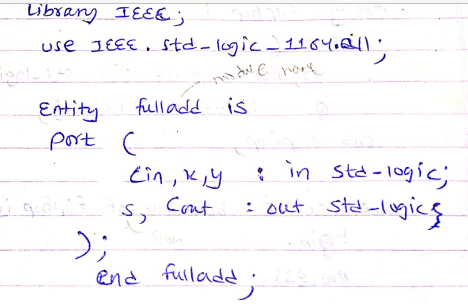 Library IEEE;
use IEEE. std-logic-1164.all;
module name
Entity fulladd is
Port (
Cin, x, y : in std-logic;
s, Cout : out std-logic;
);
end fulladd;